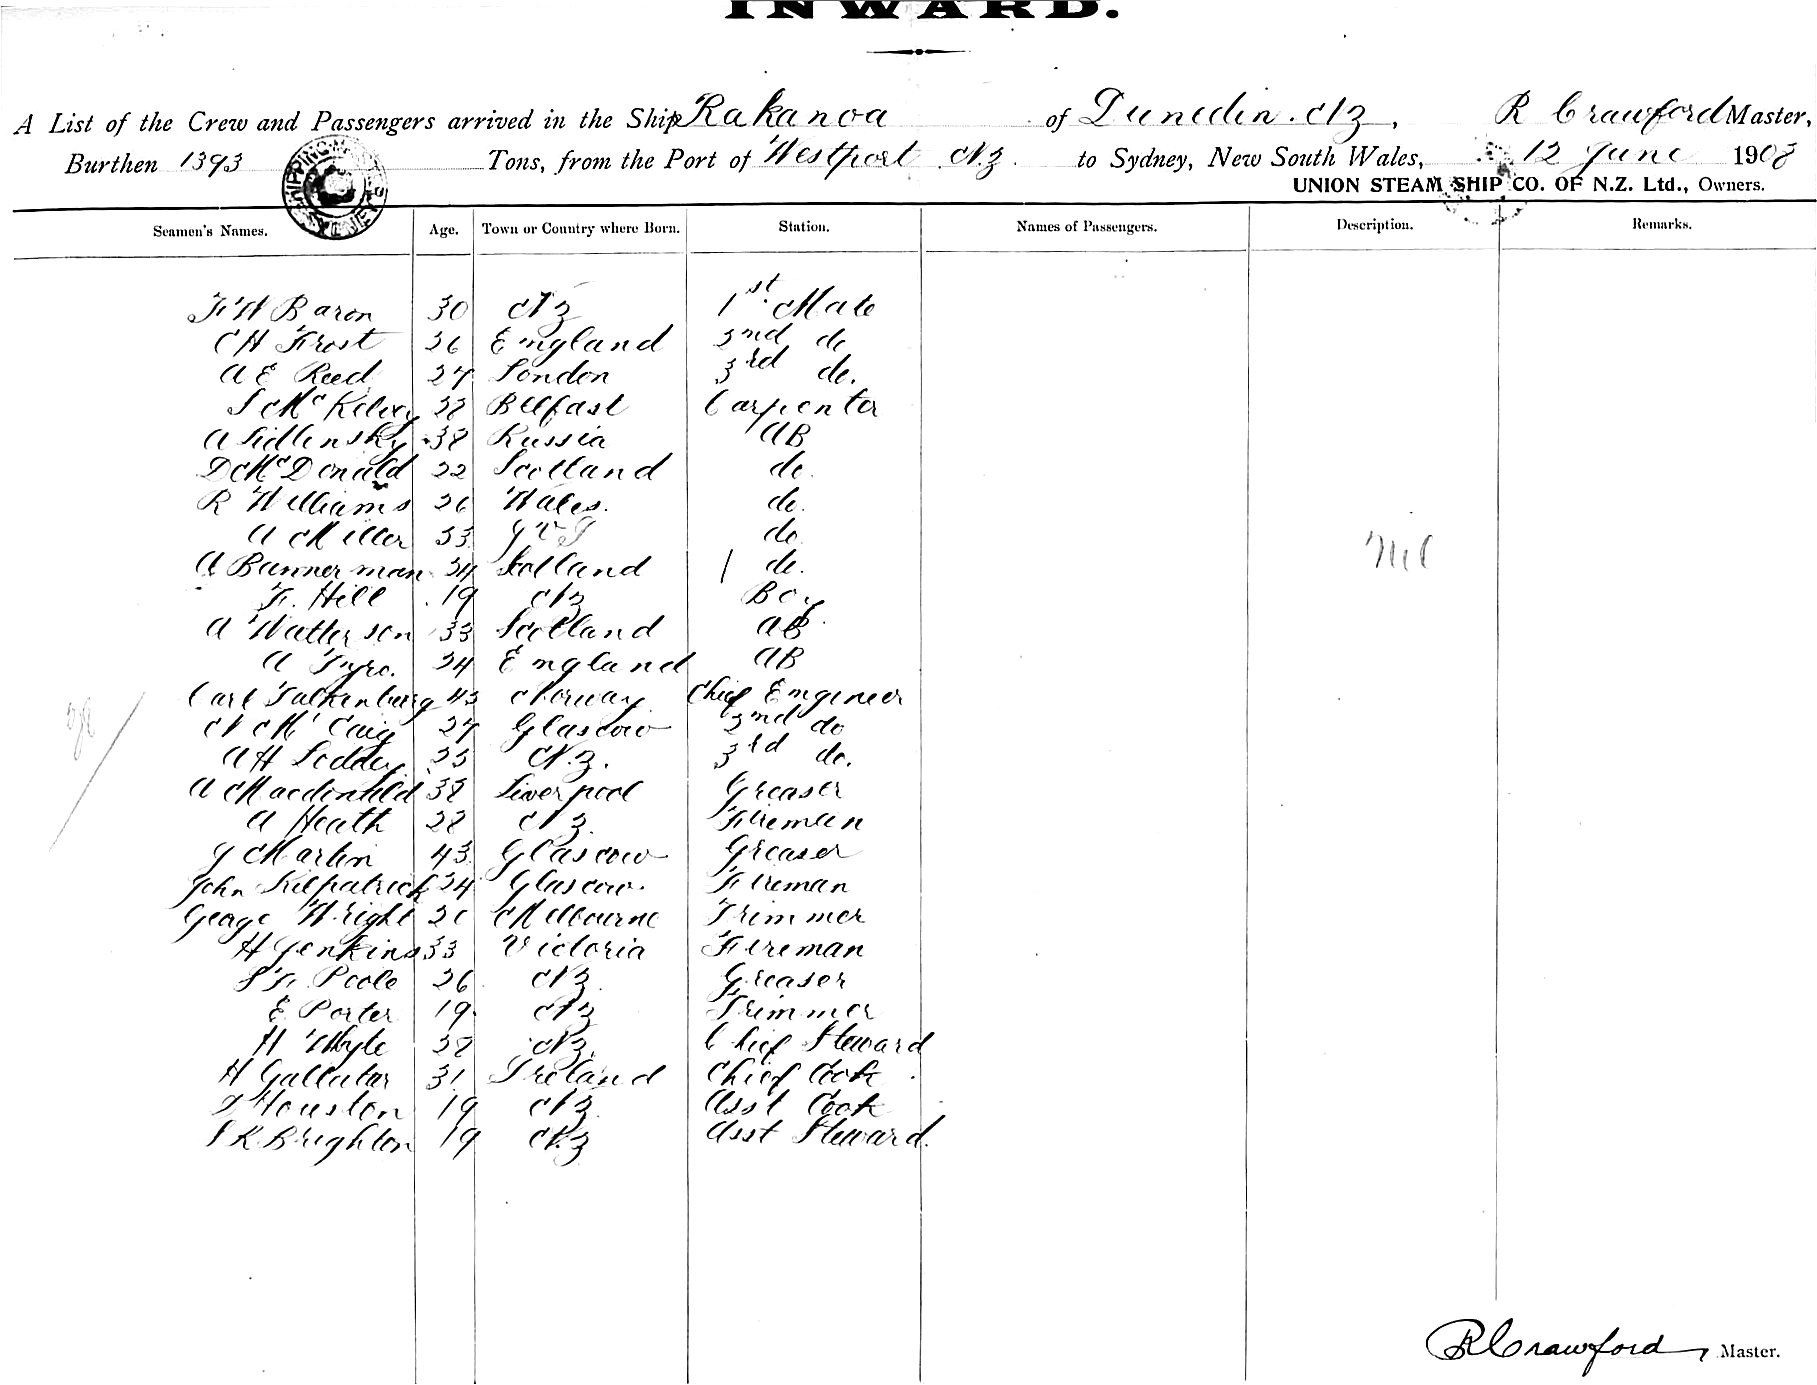 INWARD.
A List of the Crew and Passengers arrived in the Ship Rakanoa of Dunedin. NZ, R Crawford Master,
Burthen 1393 Tons, from the Port of Westport NZ. to Sydney, New South Wales, 12 June 1908
UNION STEAM SHIP CO. OF N.Z. Ltd., Owners.
Seamen's Names. Age. Town or Country where Born. Station. Names of Passengers. Description. Remarks.
F W Baron 30 NZ 1st Mate
C H Frost England 2nd do
A E Reed 27 London 3rd do.
McKelvey Belfast Carpenter
A Sidlensky 38 Russia AB
D McDonald 22 Scotland do.
R Williams 26 Wales. do.
A Miller 33 do
A Bannerman 34 Scotland 1 do.
F. Hill 19 NZ Boy
A Watterson 33 Scotland AB
A Tyro. 24 England AB
Carl Falkenburg 43 Norway Chief Engineer
N McCaig 27 Glascow 2nd do
A H Lodder NZ. 3rd do.
A Macdonald 38 Liverpool Greaser
A Heath 28 NZ. Fireman
J Martin 43 Glascow Greaser
John Kilpatrick 24 Glascow. Fireman
George Wright Melbourne Trimmer
H Jenkins 33 Victoria Fireman
S F. Poole 26 NZ Greaser
E Porter 19 NZ Trimmer
H Whyte 38 NZ. Chief Steward
H 31 Ireland Chief Cook
Houston 19 NZ Asst Cook
S K Brighton 19 NZ Asst Steward.
Nil
R Crawford, Master.